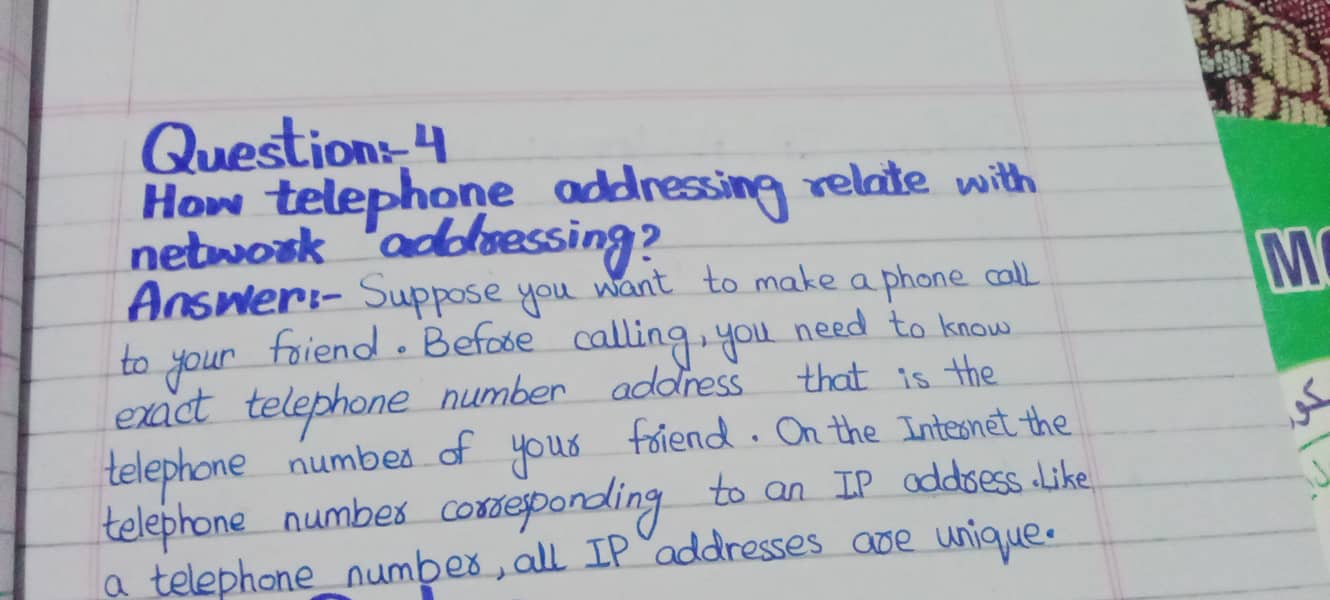 Question:-4
How telephone addressing relate with
network addressing?
Answer:- Suppose you want to make a phone call
to your friend. Before calling, you need to know
exact telephone number address that is the
telephone number of your friend. On the Internet the
telephone number corresponding to an IP address. Like
a telephone number, all IP addresses are unique.